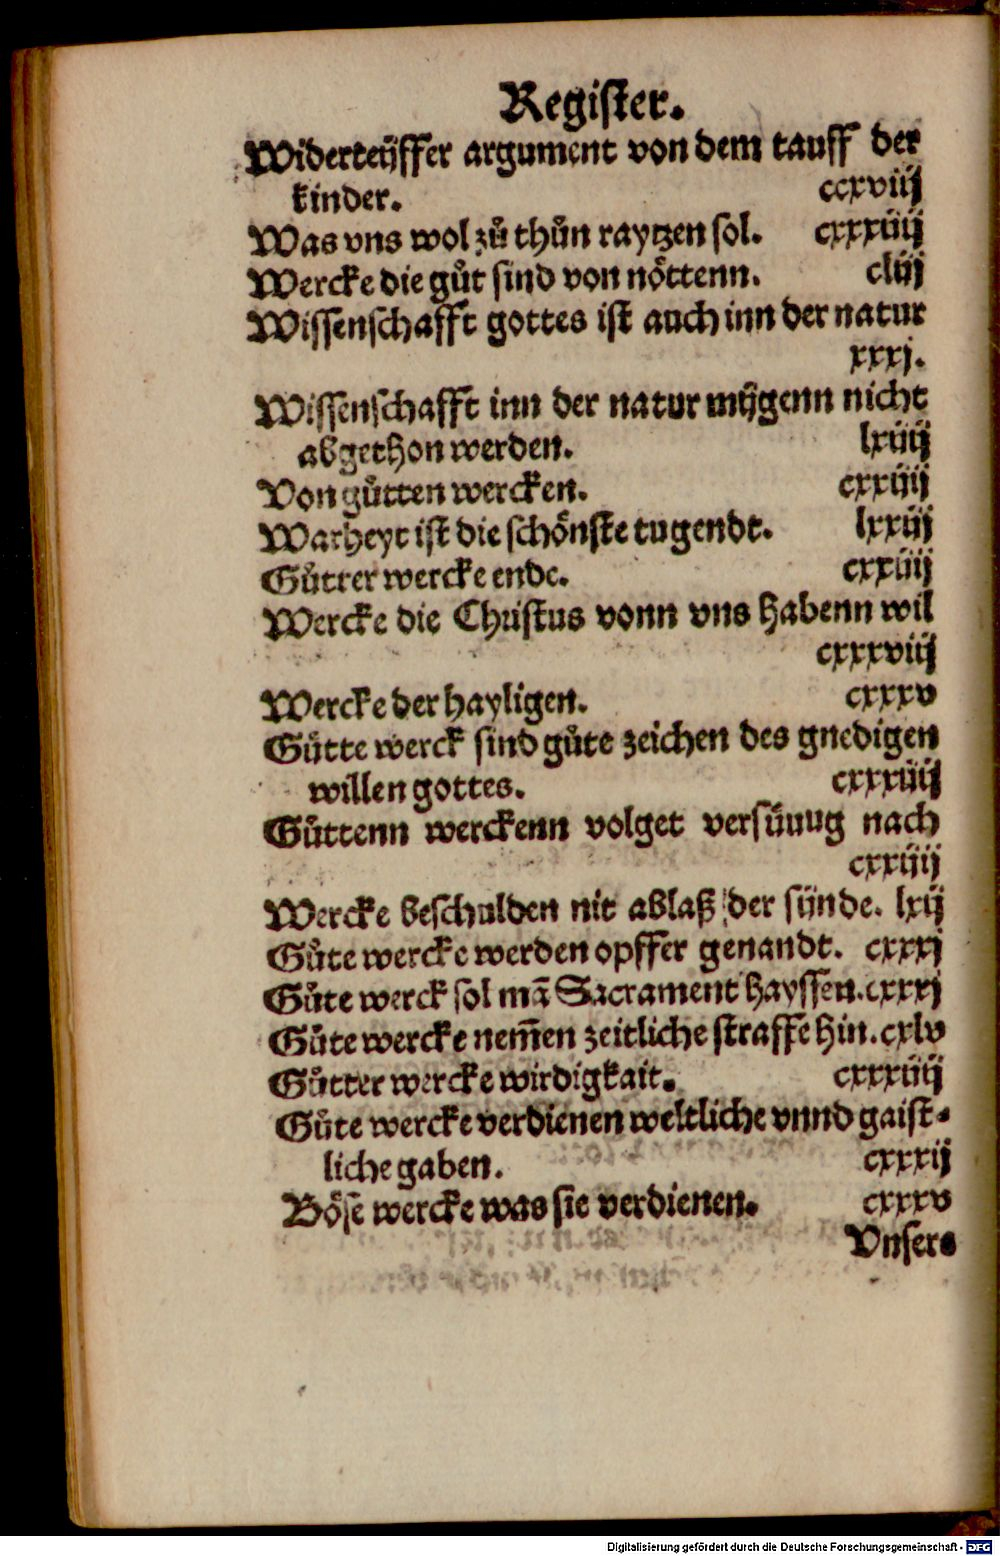 Register.
Widerteüffer argument von dem tauff der
kinder. ccxviij
Was vns wol zů thůn raytzen sol. cxxxiiij
Wercke die gůt sind von nöttenn. cliij
Wissenschafft gottes ist auch inn der natur
xxxj.
Wissenschafft inn der natur mügenn nicht
abgethon werden. lxiiij
Von gůtten wercken. cxxiiij
Warheyt ist die schönste tugendt. lxxiij
Gůtter wercke ende. cxxiiij
Wercke die Christus vonn vns habenn wil
cxxxviij
Wercke der hayligen. cxxxv
Gůtte werck sind gůte zeichen des gnedigen
willen gottes. cxxxiiij
Gůttenn werckenn volget versünug nach
cxxiiij
Wercke beschulden nit ablaß der sünde. lxij
Gůte wercke werden opffer genandt. cxxxj
Gůte werck sol mā Sacrament hayssen. cxxxj
Gůte wercke nem̄en zeitliche straffe hin. cxlv
Gůtter wercke wirdigkait. cxxxiiij
Gůte wercke verdienen weltliche vnnd gaist-
liche gaben. cxxxij
Böse wercke was sie verdienen. cxxxv
Vnsers
Digitalisierung gefördert durch die Deutsche Forschungsgemeinschaft - DFG